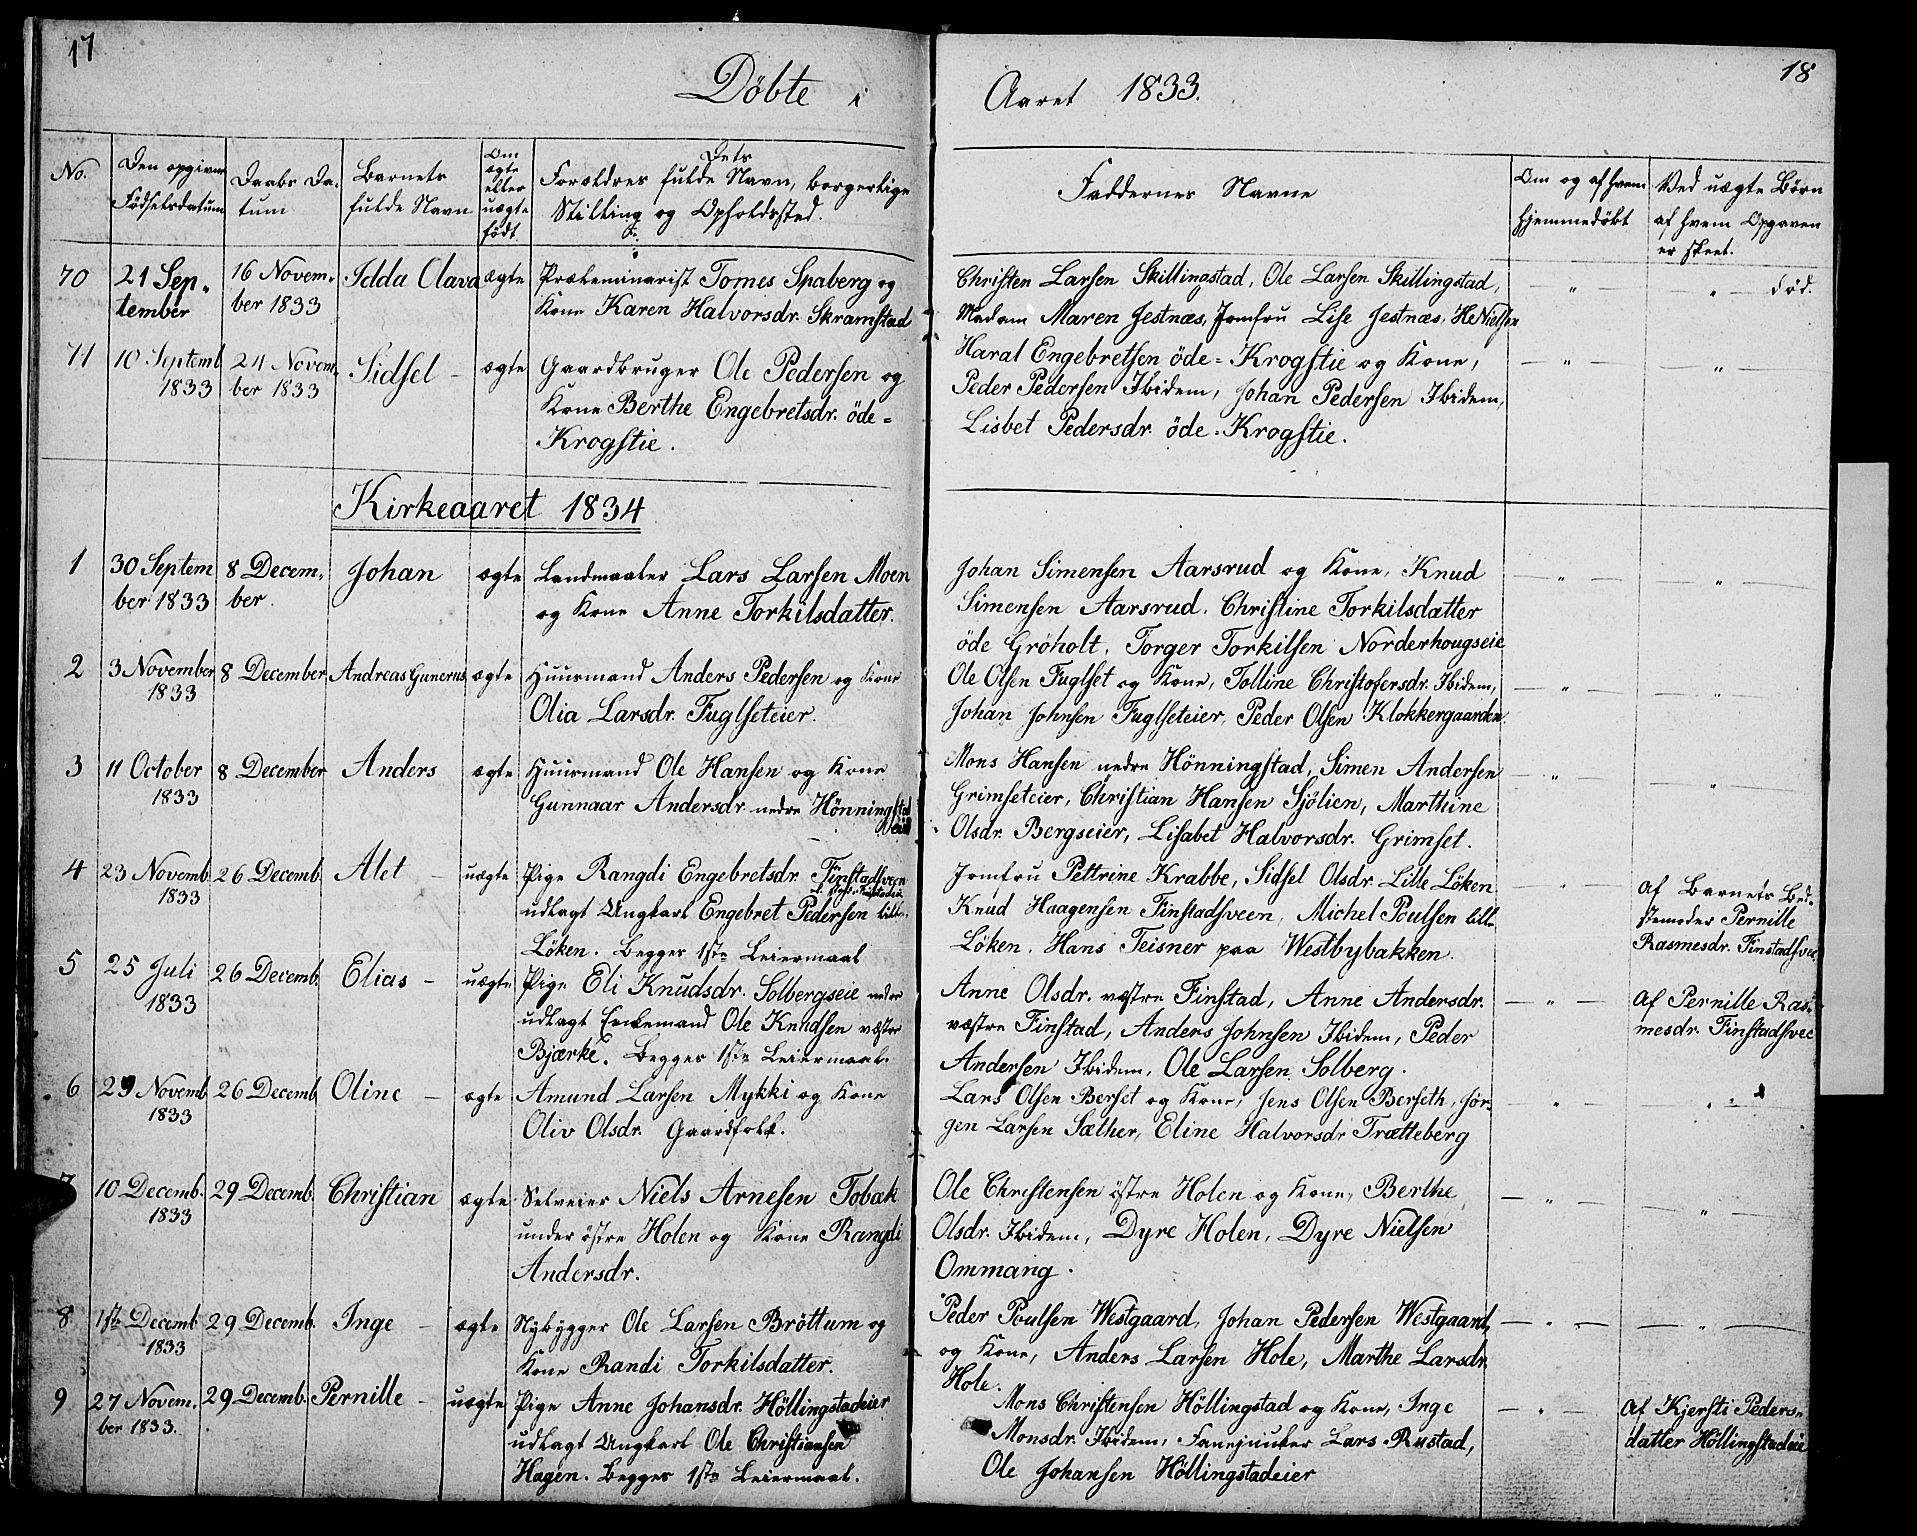 17
18
Döbte i Aaret 1833.
No.
Den opgivne
Födselsdatum
Daabs Da-
tum
Barnets
fulde Navn
Om
ægte
eller
uægte
födt.
Dets
Forældres fulde Navn, borgerlige
Stilling og Opholdssted.
Faddernes Navne
Om og af hvem
hjemmedöbt
Ved uægte Börn
af hvem Opgaven
er skeet.
70
21 Sep-
tember
16 Novem-
ber 1833
Idda Olava
ægte
Præleminarist Tomes Spaberg og
Kone Karen Halvorsdr. Skramstad
Christen Larsen Skillingstad, Ole Larsen Skillingstad,
Madam Maren Jestnæs, Jomfru Lise Jestnæs, H. Nielsen
— " —
" — död.
71
10 Septemb.
1833
24 Novem-
ber 1833
Sidsel —
ægte
Gaardbruger Ole Pedersen og
Kone Berthe Engebretsdr. öde=
Krogstie.
Haral Engebretsen öde=Krogstie og Kone,
Peder Pedersen Ibidem, Johan Pedersen Ibidem,
Lisbet Pedersdr. öde=Krogstie.
— " —
— " —
Kirkeaaret 1834
1
30 Septem
ber 1833
8 Decem-
ber.
Johan
ægte
Landmaaler Lars Larsen Moen
og Kone Anne Torkilsdatter.
Johan Simensen Aarsrud og Kone, Knud
Simensen Aarsrud. Christine Torkilsdatter
öde Gröholt, Torger Torkilsen Norderhougseie
— " —
— " —
2
3 November
1833
8 December
Andreas Gunerus
ægte
Huusmand Anders Pedersen og Kone
Olia Larsdr. Fuglseteier.
Ole Olsen Fuglset og Kone, Tolline Christofersdr. Ibidem,
Johan Johnsen Fuglseteier, Peder Olsen Klokkergaarden.
— " —
— " —
3
11 October
1833
8 December
Anders
ægte
Huusmand Ole Hansen og Kone
Gunnaar Andersdr. nedre Hönningstad
eie
Mons Hansen nedre Hönningstad, Simen Andersen
Grimseteier, Christian Hansen Sjölien, Marthine
Olsdr. Bergseier, Lisabet Halvorsdr. Grimset.
— " —
"
4
23 Novemb.
1833
26 Decemb.
Alet —
uægte
Pige Rangdi Engebretsdr. Finstadsveen
udlagt Ungkarl Engebret Pedersen lille
Löken. Begges 1ste Leiermaal
Jomfru Pettrine Krabbe, Sidsel Olsdr. Lille Löken.
Knud Haagensen Finstadsveen, Michel Poulsen lille
Löken. Hans Teisner paa Westbybakken.
— " —
Af Barnets Bed-
stemoder Pernille
Rasmesdr. Finstadsvee.
5
25 Juli
1833
26 Decemb.
Elias —
uægte
Pige Eli Knudsdr. Solbergseie nedre
udlagt Enkemand Ole Knudsen vestre
Bjærke. Begges 1ste Leiermaal.
Anne Olsdr. vestre Finstad, Anne Andersdr.
vestre Finstad, Anders Johnsen Ibidem, Peder
Andersen Ibidem, Ole Larsen Solberg.
— " —
Af Pernille Ras-
mesdr. Finstadsvee
6
29 Novemb
1833
26 Decemb
Oline —
ægte
Amund Larsen Mykki og Kone
Oliv Olsdr. Gaardfolk.
Lars Olsen Berset og Kone, Jens Olsen Berseth, Jör-
gen Larsen Sæther, Eline Halvorsdr Trætteberg
— " —
"
7
10 Decemb.
1833
29 Decemb.
Christian
ægte
Selveier Niels Arnesen Tobak
under östre Holen og Kone Rangdi
Andersdr.
Ole Christensen östre Holen og Kone, Berthe
Olsdr. Ibidem, Dyre Holen, Dyre Nielsen
Ommang.
— " —
"
8
1ste Decemb
1833
29 Decemb.
Inge —
ægte
Nybygger Ole Larsen Bröttum og
Kone Randi Torkilsdatter.
Peder Poulsen Westgaard, Johan Pedersen Westgaard,
og Kone, Anders Larsen Hole, Marthe Larsdr.
Hole.
— " —
— " —
9
27 Novem-
ber 1833.
29 Decemb.
Pernille —
uægte
Pige Anne Johansdr. Höllingstadeier
udlagt Ungkarl Ole Christiansen
Hagen. Begges 1ste Leiermaal.
Mons Christensen Höllingstad og Kone, Inge
Monsdr. Ibidem, Fanejunker Lars Rustad,
Ole Johansen Höllingstadeier
— " —
Af Kjersti Peders-
datter Höllingstadeie